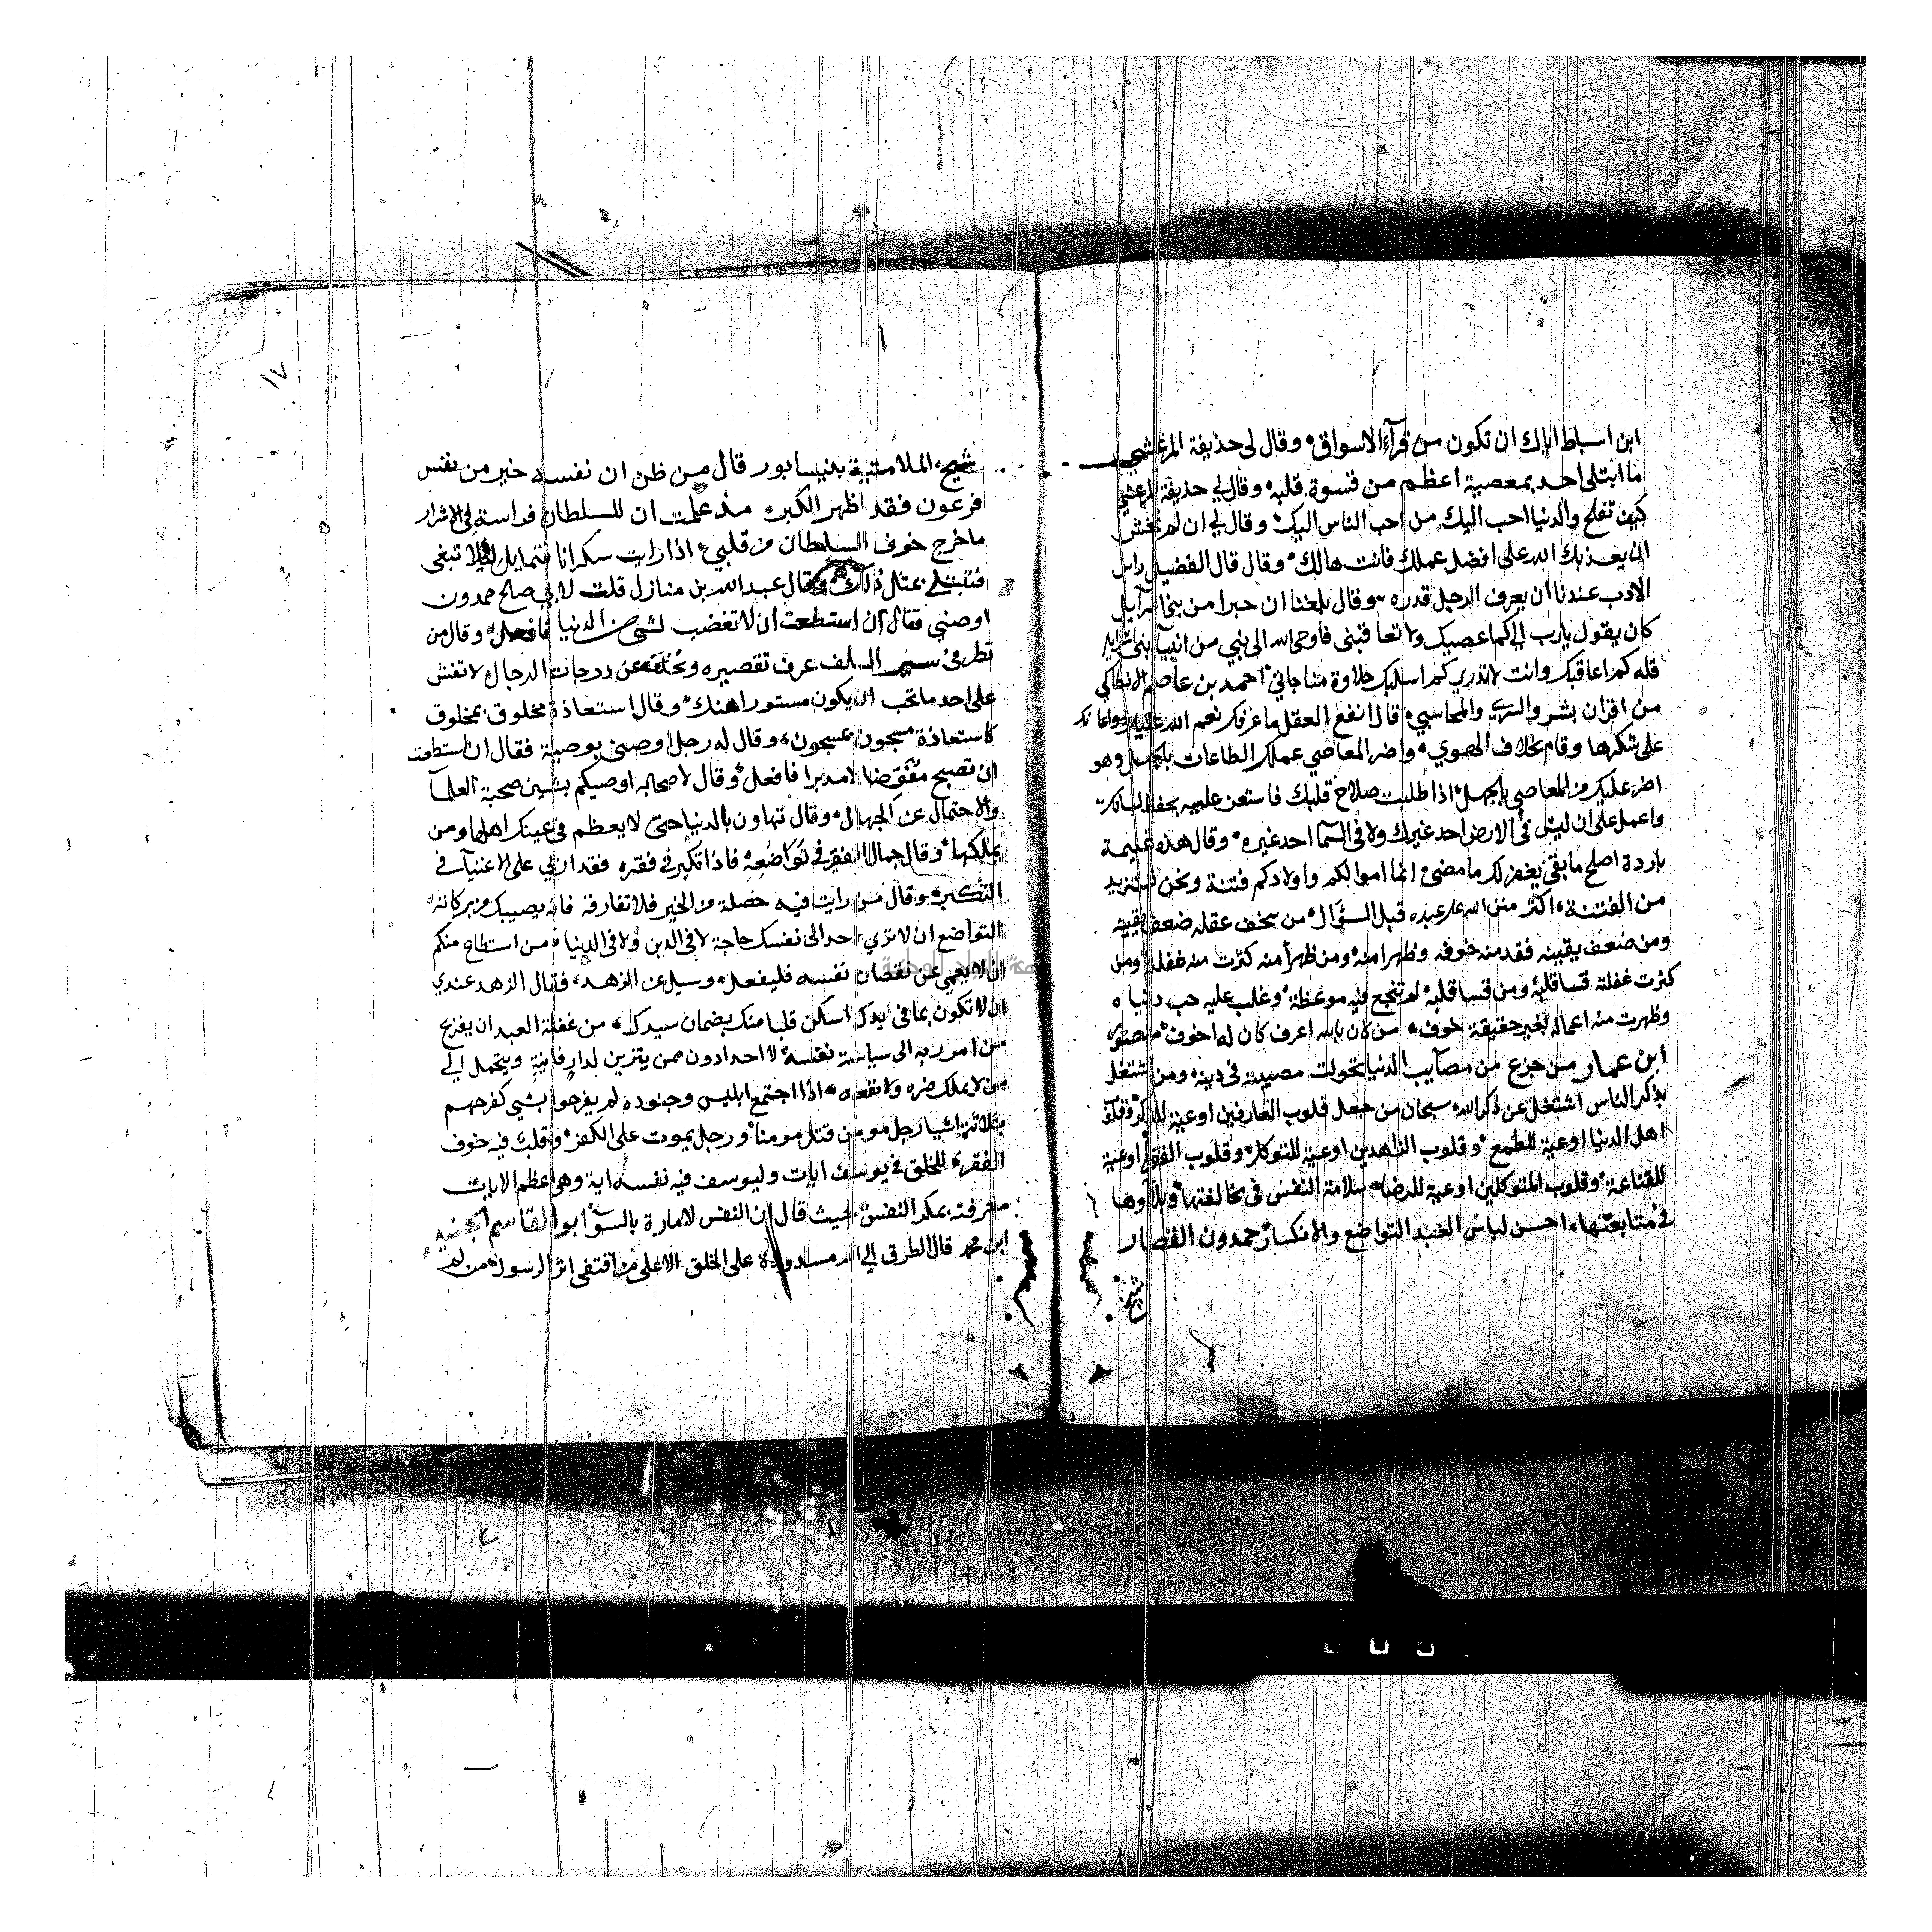 ابن اسباط اياك ان تكون من قرآء الاسواق وقال لى حذيفة المرعشي
ما ابتلى احد بمعصية اعظم من قسوة قلبه وقال لي حذيفة المرعشي
كيف تفلح والدنيا احب اليك من احب الناس اليك وقال لي ان لم تخش
ان يعذبك الله على افضل عملك فانت هالك وقال قال الفضيل راس
الادب عندنا ان يعرف الرجل قدره وقال بلغنا ان حبرا من بنى اسرآيل
كان يقول يارب الى كم اعصيك ولا تعاقبنى فاوحى الله الى نبي من انبيآ بنى اسرايل
قل له كم اعاقبك وانت لا تدري كم اسلبك حلاوة مناجاتي احمد بن عاصم الانطاكي
من اقران بشر والسري والمحاسبي قال انفع العقل ما عرفك نعم الله عليك واعانك
على شكرها وقام بخلاف الهوي واضر المعاصي عملك الطاعات بالجهل وهو
اضر عليك من المعاصي بالجهل اذا طلبت صلاح قلبك فاستعن عليه بحفظ لسانك
واعمل على ان ليس في الارض احد غيرك ولا في السمآ احد غيره وقال هذه غنيمة
باردة اصلح ما بقي يغفر لك ما مضى انما اموالكم واولادكم فتنة ونحن نستزيد
من الفتنة اكثر منن الله على عبده قبل السؤال من سخف عقله ضعف يقينه
ومن ضعف يقينه فقد منه خوفه وظهر امنه ومن ظهر أمنه كثرت منه غفلته ومن
كثرت غفلته قسا قلبه ومن قسا قلبه لم تنجع فيه موعظة وغلب عليه حب دنياه
وظهرت منه اعماله بغير حقيقة خوف من كان بالله اعرف كان له اخوف منصور
ابن عمار من جزع من مصآيب الدنيا تحولت مصيبته في دينه ومن اشتغل
بذكر الناس اشتغل عن ذكر الله سبحان من جعل قلوب العارفين اوعية للذكر وقلوب
اهل الدنيا اوعية للطمع وقلوب الزاهدين اوعية للتوكل وقلوب الفقرا اوعية
للقناعة وقلوب المتوكلين اوعية للرضا سلامة النفس في مخالفتها وبلاوها
في متابعتها احسن لباس العبد التواضع والانكسار حمدون القصار
شيخ
شيخ الملامتية بنيسابور قال من ظن ان نفسه خير من نفس
فرعون فقد اظهر الكبر مذ علمت ان للسلطان فراسة في الاشرار
ما خرج خوف السلطان من قلبي اذا رايت سكرانا فتمايل لئلا تبغى
فتبتلى بمثل ذلك وقال عبد الله بن منازل قلت لابي صالح حمدون
اوصني فقال ان استطعت ان لا تغضب لشي من الدنيا فافعل وقال من
نظر في سير السلف عرف تقصيره وتخلفه عن درجات الرجال لا تفش
على احد ما تحب ان يكون مستورا منك وقال استعاذة مخلوق بمخلوق
كاستعاذة مسجون بمسجون وقال له رجل اوصنى بوصية فقال ان استطعت
ان تصبح مفوضا لا مدبرا فافعل وقال لاصحابه اوصيكم بشيين صحبة العلمآ
والاحتمال عن الجهال وقال تهاون بالدنيا حتى لا يعظم في عينك اهلها ومن
يملكها وقال جمال الفقر في تواضعه فاذا تكبر في فقره فقد اربي على الاغنيآ في
التكبر وقال من رايت فيه خصلة من الخير فلا تفارقه فانه يصيبك من بركاته
التواضع ان لا تري احد الى نفسك حاجة لا في الدين ولا في الدنيا من استطاع منكم
ان لا يعمي عن نقصان نفسه فليفعل وسيل عن الزهد فقال الزهد عندي
ان لا تكون بما في يدك اسكن قلبا منك بضمان سيدك من غفلة العبد ان يفرغ
من امر ربه الى سياسة نفسه لا احد ادون ممن يتزين لدار فانية ويتحمل الى
من لا يملك ضره ولا نفعه اذا اجتمع ابليس وجنوده لم يفرحوا بشي كفرحهم
بثلاثة اشيا رجل مومن قتل مومنا ورجل يموت على الكفر وقلب فيه خوف
الفقر للخلق في يوسف ايات وليوسف فيه نفسه اية وهى اعظم الايات
معرفته بمكر النفس حيث قال ان النفس لامارة بالسؤ ابو القاسم الجنيد
ابن محمد قال الطرق الى الله مسدودة على الخلق الا على من اقتفى اثر الرسول من لم